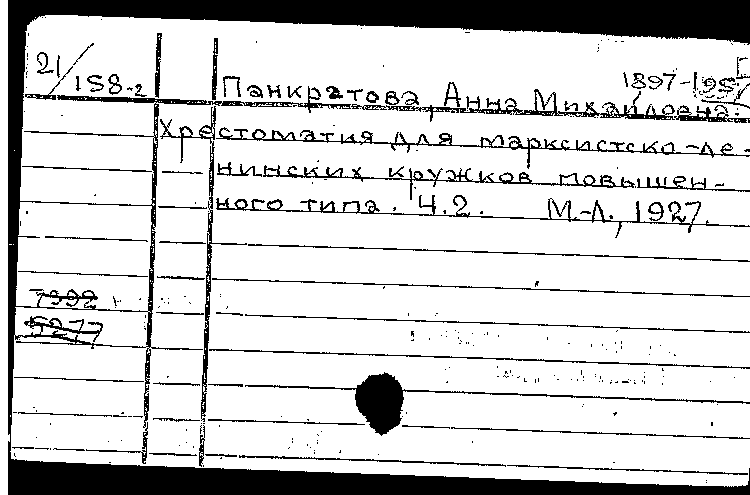 21/158-2
1897-1957
Панкратова, Анна Михайловна.
Хрестоматия для марксистско-ле-
нинских кружков повышен-
ного типа. Ч.2. М.-Л., 1927.
7992
5277